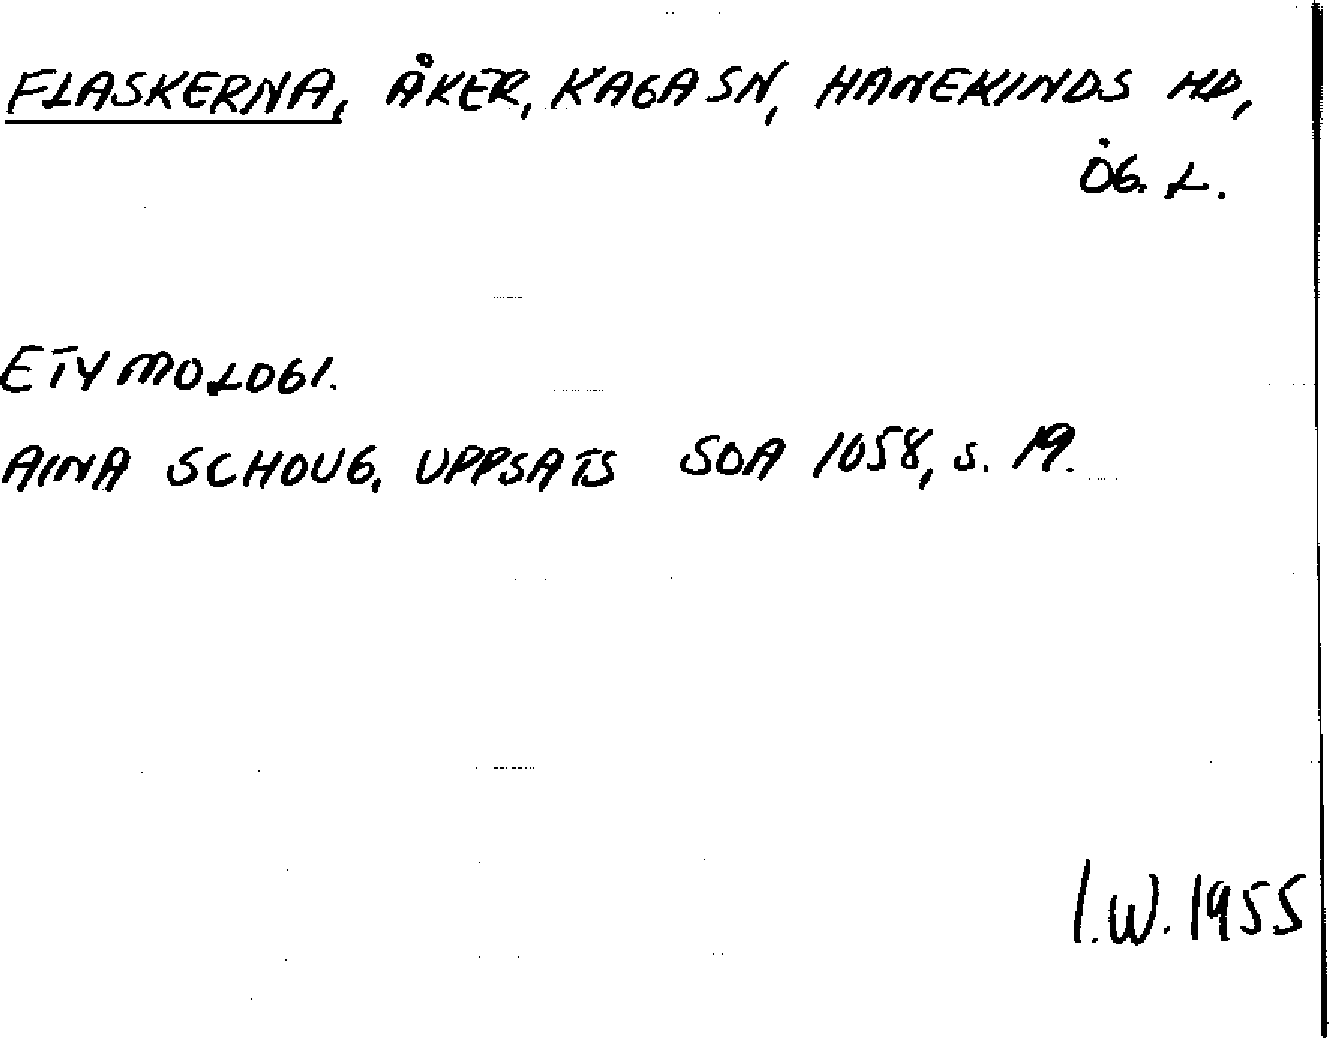 FLASKERNA, ÅKER, KAGA SN, HANEKINDS HD,
ÖG. L.
ETYMOLOGI.
AINA SCHOUG. UPPSATS SOA 1058, s. 19.
I.W. 1955